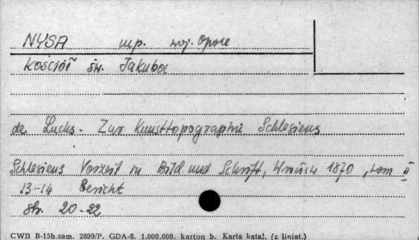 NYSA mp. woj. Opole
Kościół św. Jakuba
dr. Luchs. Zur Kunsttopographie Schlesiens
Schlesiens Vorzeit in Bild und Schrift, 1870, tom II
13-14 Bericht
str. 20-22
CWD B-15b.zam. 2899/P. GDA-8. 1.000.000. karton b. Karta katal. (z liniat.)